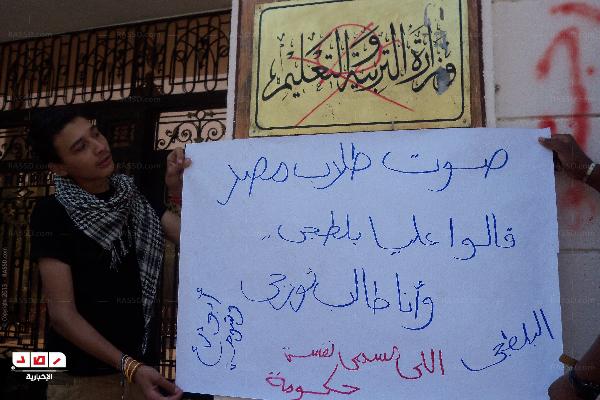 وزارة التربية والتعليم
صوت طلاب مصر
قالوا عليا بلطجى ..
وأنا طالب ثورجى
البلطجى
اللى مسمى نفسة
حكومة
رصد
الإخبارية
RASSD.com